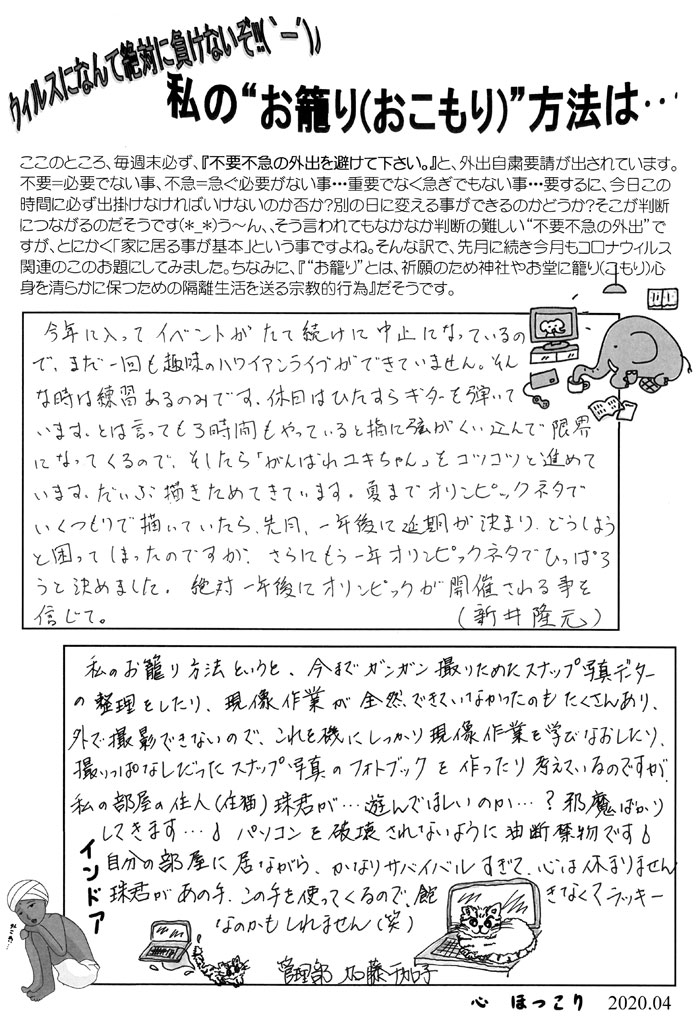 ウィルスになんて絶対に負けないぞ!!!(｀ー´)ﾉ
私の“お籠り(おこもり)”方法は…
ここのところ、毎週末必ず、『不要不急の外出を避けて下さい。』と、外出自粛要請が出されています。
不要=必要でない事、不急=急ぐ必要がない事…重要でなく急ぎでもない事…要するに、今日この
時間に必ず出掛けなければいけないのか否か?別の日に変える事ができるのかどうか?そこが判断
につながるのだそうです(*_*)う〜ん、そう言われてもなかなか判断の難しい“不要不急の外出”で
すが、とにかく「家に居る事が基本」という事ですよね。そんな訳で、先月に続き今月もコロナウィルス
関連のこのお題にしてみました。ちなみに、『“お籠り”とは、祈願のため神社やお堂に籠り(こもり)心
身を清らかに保つための隔離生活を送る宗教的行為』だそうです。
今年に入ってイベントがたて続けに中止になっているの
で、まだ一回も趣味のハワイアンライブができていません。そん
な時は練習あるのみです。休日はひたすらギターを弾いて
います。とは言っても3時間もやっていると指に弦がくい込んで限界
になってくるので、そしたら「がんばれユキちゃん」をコツコツと進めて
います。だいぶ描きためてきています。夏までオリンピックネタで
いくつもりで描いていたら、先月、一年後に延期が決まり、どうしよう
と困ってしまったのですが、さらにもう一年オリンピックネタでひっぱろ
うと決めました。絶対一年後にオリンピックが開催される事を
信じて。(新井隆元)
私のお籠り方法というと、今までガンガン撮りためたスナップ写真データー
の整理をしたり、現像作業が全然できていなかったのもたくさんあり、
外で撮影できないので、これを機にしっかり現像作業を学びなおしたり、
撮りっぱなしだったスナップ写真のフォトブックを作ったり考えているのですが、
私の部屋の住人(住猫)珠君が…遊んでほしいのか…?邪魔ばかり
してきます…♪パソコンを破壊されないように油断禁物です♪
自分の部屋に居ながら、かなりサバイバルすぎて、心は休まりません
珠君があの手、この手を使ってくるので、飽きなくてラッキー
なのかもしれません(笑)
管理部 加藤
インドア
心 ほっこり 2020.04